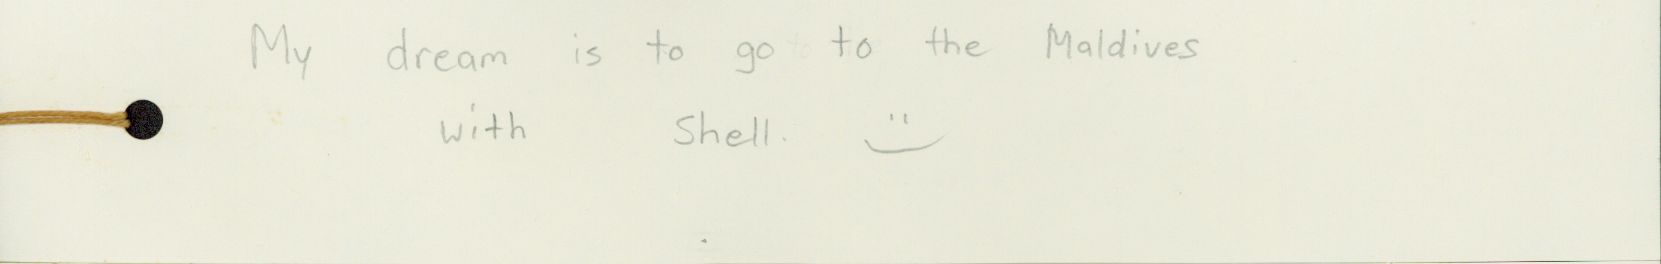 My dream is to go to the Maldives
with Shell. :)